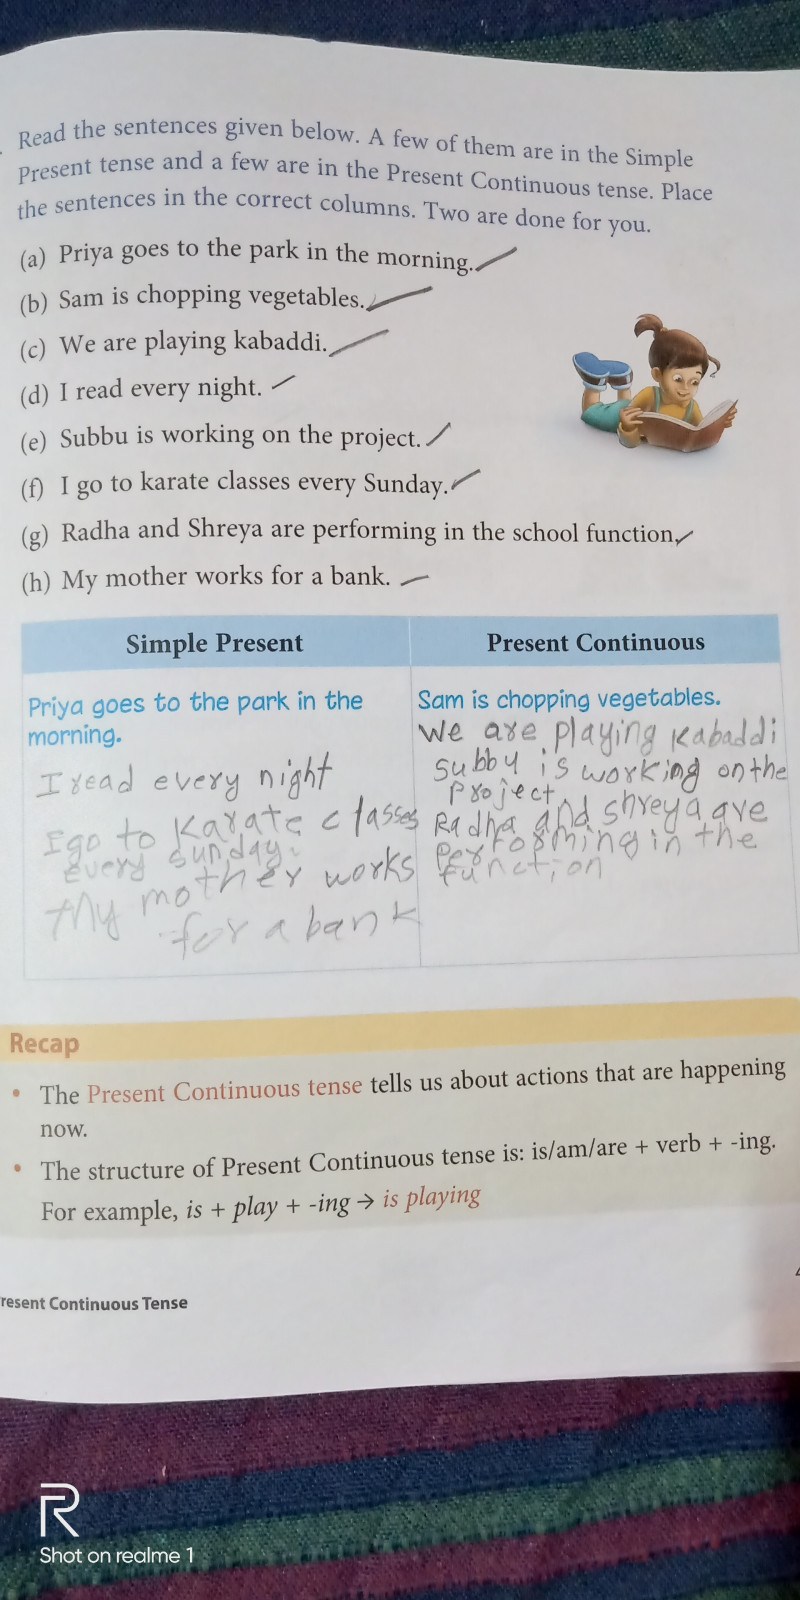 Read the sentences given below. A few of them are in the Simple
Present tense and a few are in the Present Continuous tense. Place
the sentences in the correct columns. Two are done for you.
(a) Priya goes to the park in the morning.
(b) Sam is chopping vegetables.
(c) We are playing kabaddi.
(d) I read every night.
(e) Subbu is working on the project.
(f) I go to karate classes every Sunday.
(g) Radha and Shreya are performing in the school function.
(h) My mother works for a bank.
Simple Present
Priya goes to the park in the
morning.
I read every night
I go to Karate classes
every sunday.
My mother works
for a bank
Present Continuous
Sam is chopping vegetables.
We are playing Kabaddi
subby is working on the
project
Radha and shreya are
performing in the
function
Recap
• The Present Continuous tense tells us about actions that are happening
now.
• The structure of Present Continuous tense is: is/am/are + verb + -ing.
For example, is + play + -ing → is playing
resent Continuous Tense
R
Shot on realme 1